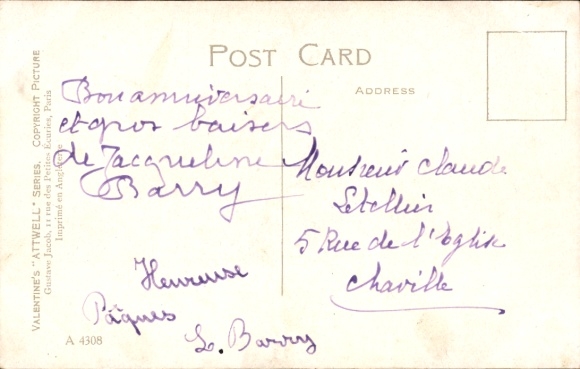 POST CARD
ADDRESS
Bon anniversaire
et gros baisers
de Jacqueline
Barry
Heureuse
Pâques
L. Barry
Monsieur Claude
Letellier
5 Rue de l'Eglise
Chaville
VALENTINE'S "ATTWELL" SERIES. COPYRIGHT PICTURE
Gustave Jacob, 11 rue des Petites Écuries, Paris
Imprimé en Angleterre
A 4308